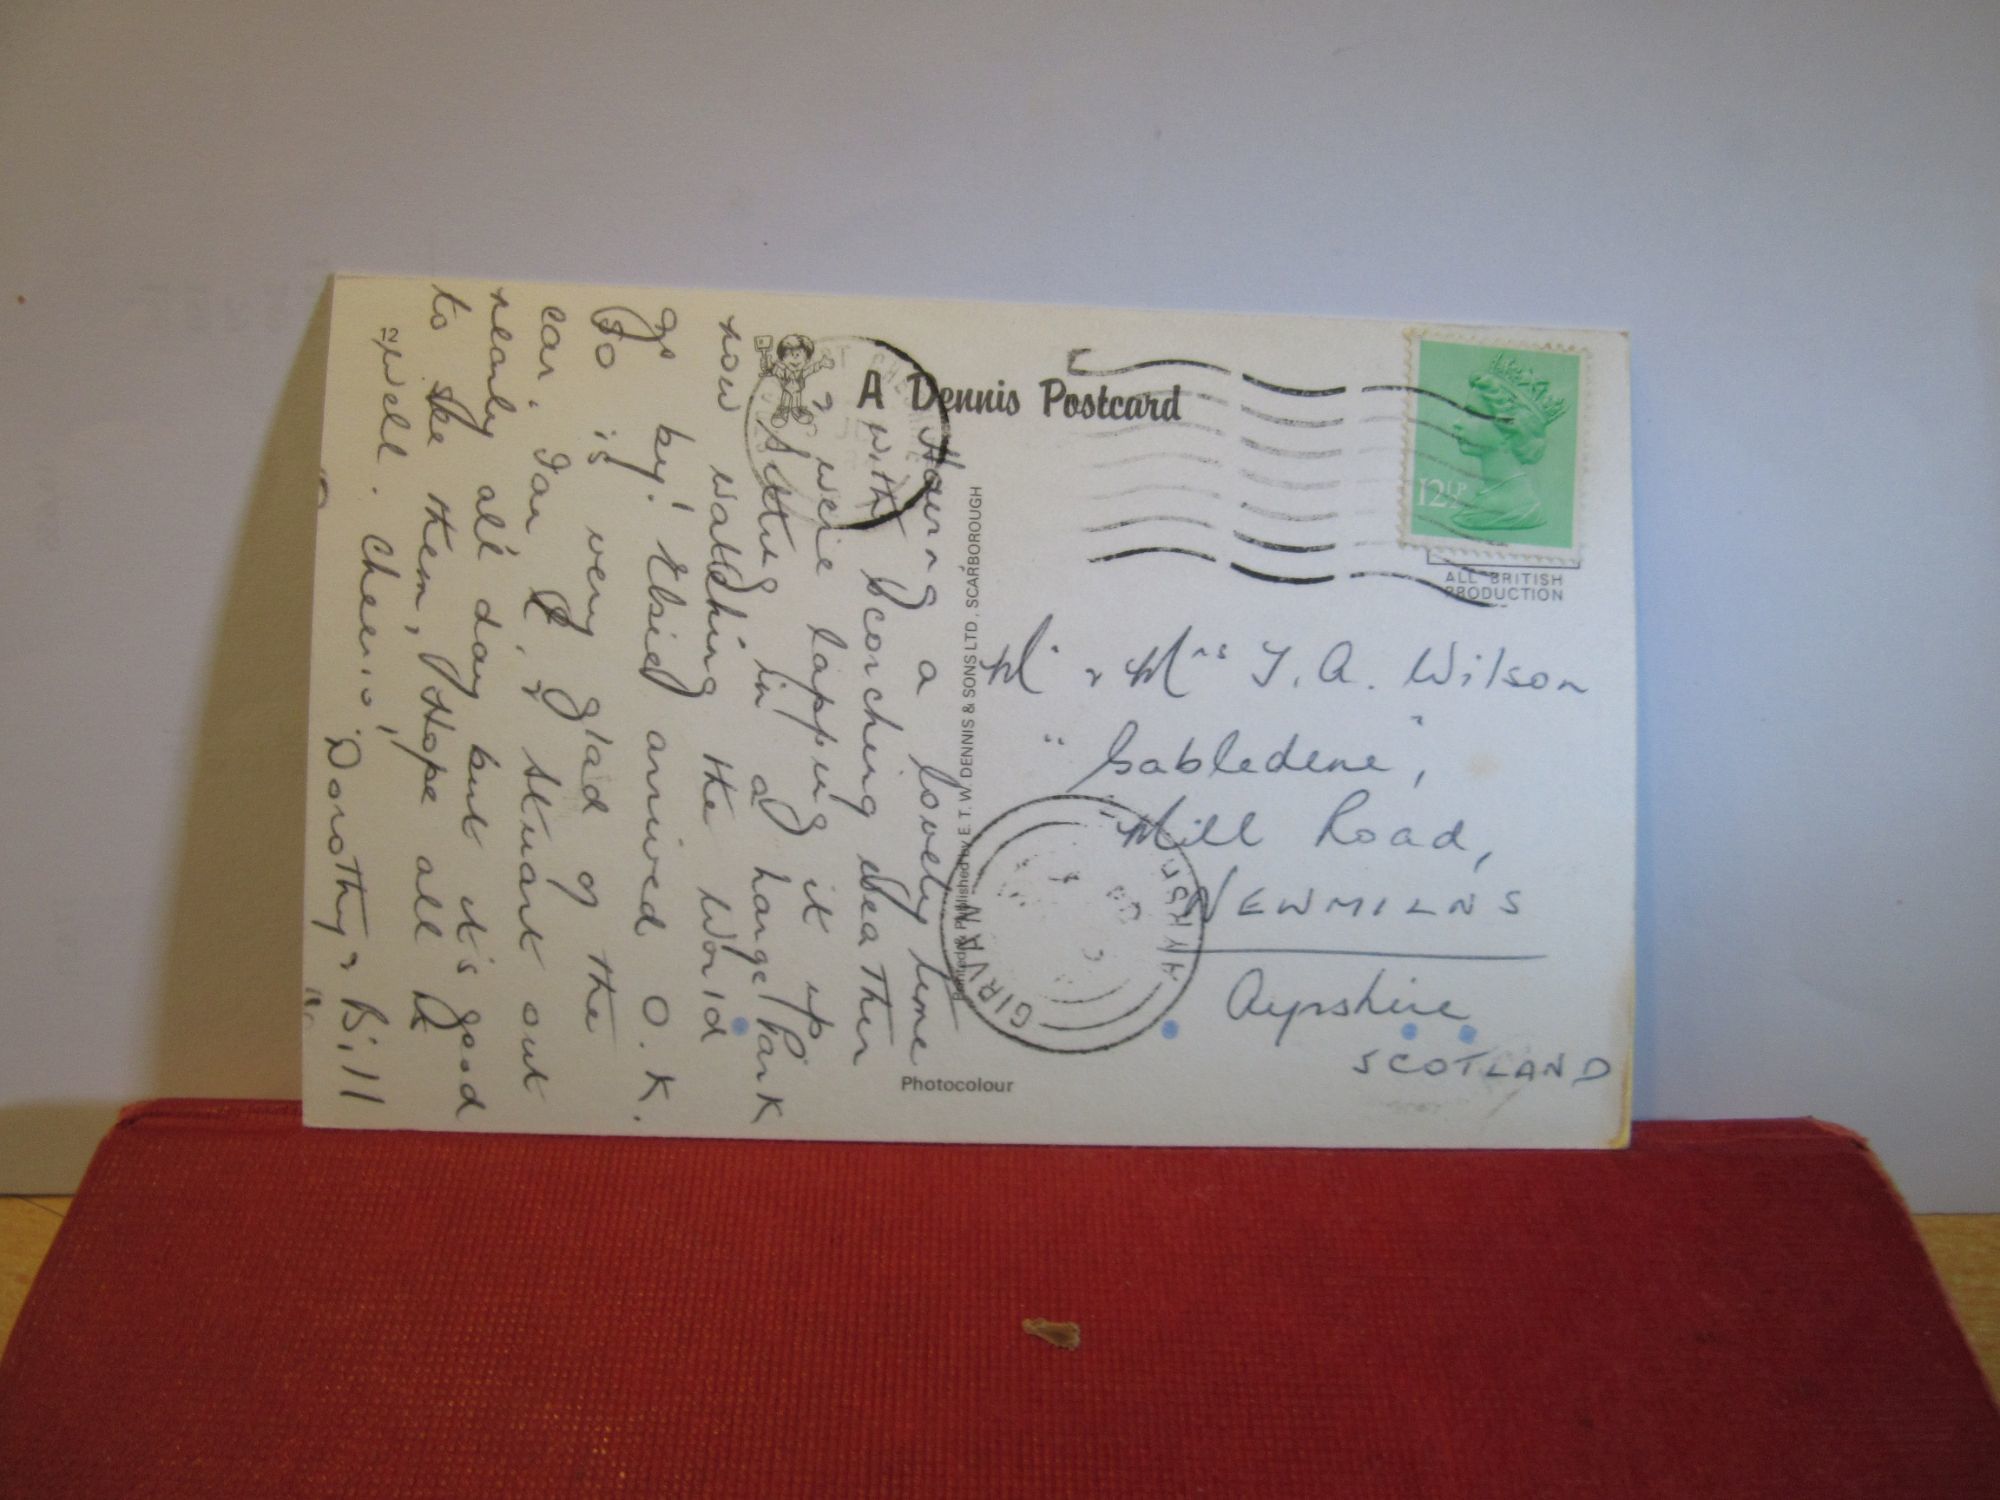 A Dennis Postcard
12½P
ALL BRITISH
PRODUCTION
Having a lovely time
with scorching weather
& we're lapping it up
Sitting in a large Park
now watching the World
go by! Elsie arrived O.K.
so is very glad of the
car. Ian & Stuart out
nearly all day but it's good
to see them, Hope all is
well. Cheerio,
Dorothy & Bill
12
Printed & Published by E. T. W. DENNIS & SONS LTD., SCARBOROUGH
Photocolour
GIRVAN
AYRSH
Mr & Mrs T. A. Wilson
"Gabledene",
Mill Road,
NEWMILNS
Ayrshire
SCOTLAND